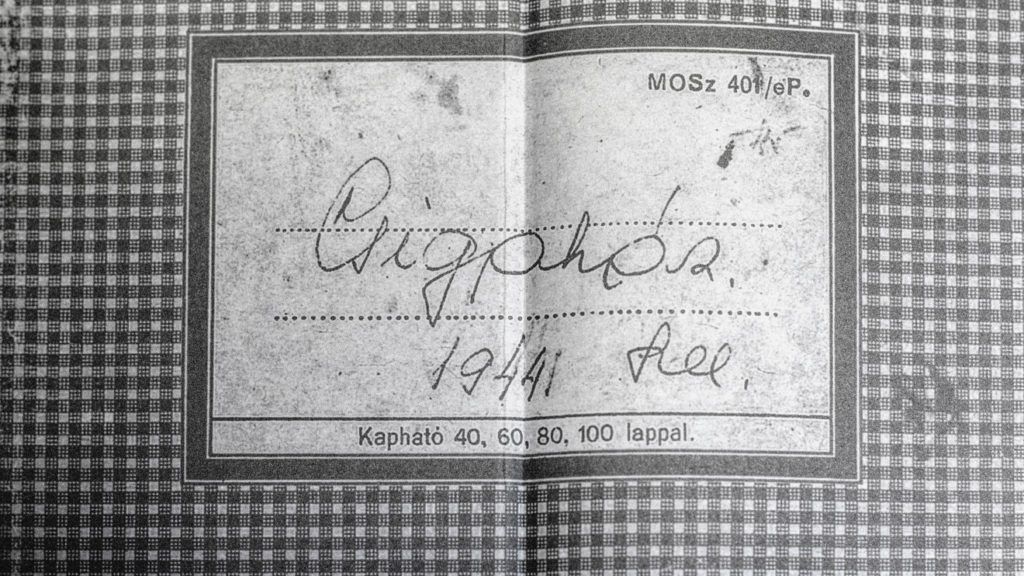 MOSz 401/eP.
Csigaház.
1944
Kapható 40, 60, 80, 100 lappal.